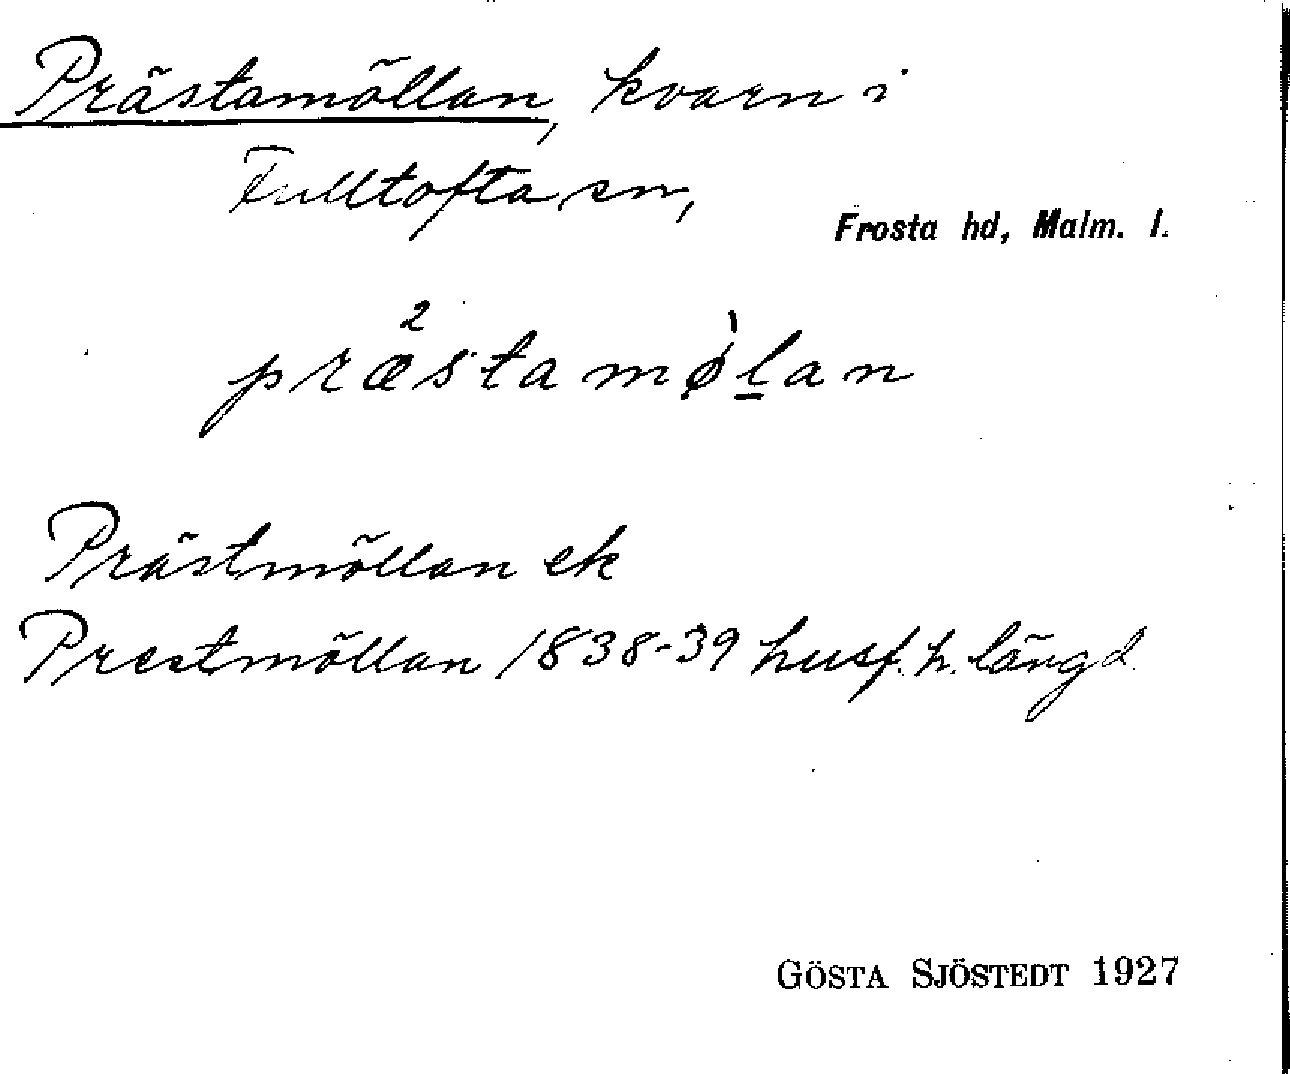 Prästamöllan, kvarn i
Fulltofta sn,
Frosta hd, Malm. l.
præ²stamø̀l̲an
Prästmöllan ek
Prestmöllan 1838-39 husf. h. längd
GÖSTA SJÖSTEDT 1927